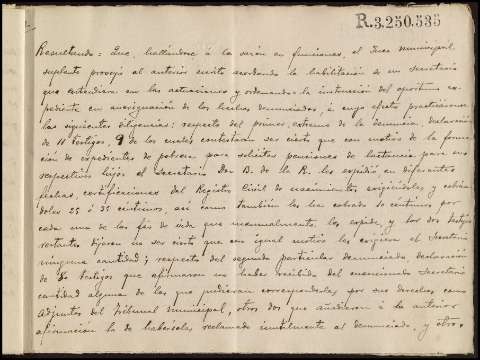 R.3.250.535
Resultando = Que, hallándose á la sazón en funciones, el Juez municipal
suplente proveyó al anterior escrito acordando la habilitación de un Secretario
que entendiera en las actuaciones y ordenando la instrucción del oportuno ex-
pediente en averiguación de los hechos denunciados, á cuyo efecto practicáronse
las siguientes diligencias: respecto del primer extremo de la denuncia, declaración
de 11 testigos, 9 de los cuales contestaron ser cierto que con motivo de la forma-
ción de expedientes de pobreza para solicitar pensiones de lactancia para sus
respectivos hijos el Secretario Don B. de la R. les expidió en diferentes
fechas, certificaciones del Registro Civil de nacimientos exigiéndoles y cobrán-
doles 25 ó 35 céntimos, así como también les ha cobrado 10 céntimos por
cada una de las fés de vida que mensualmente les expide, y los dos testigos
restantes dijeron no ser cierto que con igual motivo les exigiera el Secretario
ninguna cantidad; respecto del segundo particular denunciado, declaración
de testigos que afirmaron no haber recibido del mencionado Secretario
cantidad alguna de las que pudieran corresponderles por sus derechos como
Adjuntos del Tribunal municipal, otros dos que añadieron á la anterior
afirmación la de habérselas reclamado inutilmente al denunciado, y otro